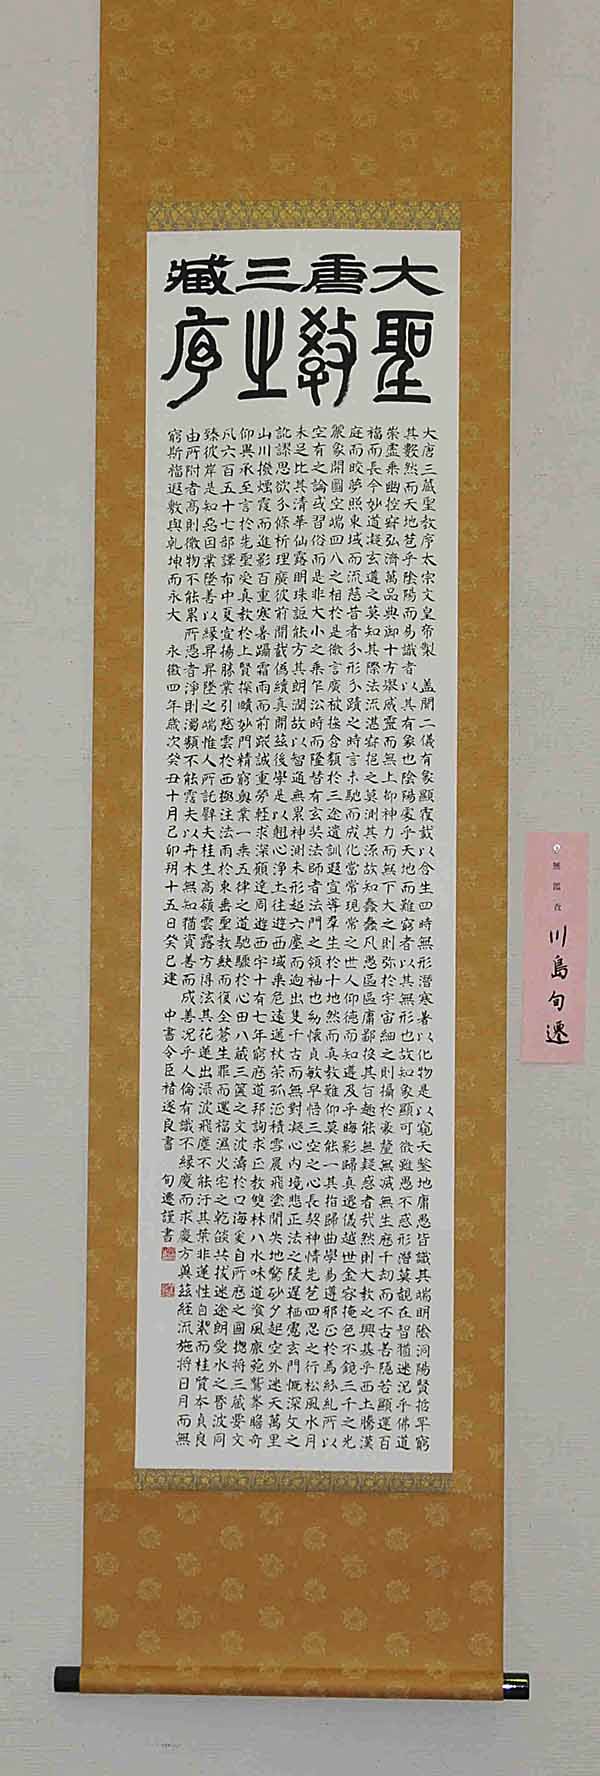 大唐三藏
聖教之序
大唐三藏聖教序太宗文皇帝製 蓋聞二儀有象顯覆載以含生四時無形潛寒暑以化物是以窺天鑒地庸愚皆識其端明陰洞陽賢哲罕窮
其數然而天地苞乎陰陽而易識者以其有象也陰陽處乎天地而難窮者以其無形也故知象顯可徵雖愚不惑形潛莫覩在智猶迷況乎佛道
崇虛乘幽控寂弘濟萬品典御十方舉威靈而無上抑神力而無下大之則彌於宇宙細之則攝於豪釐無滅無生歷千劫而不古若隱若顯運百
福而長今妙道凝玄遵之莫知其際法流湛寂挹之莫測其源故知蠢蠢凡愚區區庸鄙投其旨趣能無疑惑者哉然則大教之興基乎西土騰漢
庭而皎夢照東域而流慈昔者分形分蹟之時言未馳而成化當常現常之世人仰德而知遵及乎晦影歸真遷儀越世金容掩色不鏡三千之光
麗象開圖空端四八之相於是微言廣被拯含類於三途遺訓遐宣導羣生於十地然而真教難仰莫能一其指歸曲學易遵邪正於焉紛糺所以
空有之論或習俗而是非大小之乘乍沿時而隆替有玄奘法師者法門之領袖也幼懷貞敏早悟三空之心長契神情先苞四忍之行松風水月
未足比其清華仙露明珠詎能方其朗潤故以智通無累神測未形超六塵而迥出隻千古而無對凝心內境悲正法之陵遲栖慮玄門慨深文之
訛謬思欲分條析理廣彼前聞截偽續真開茲後學是以翹心淨土往遊西域乘危遠邁杖策孤征積雪晨飛塗間失地驚砂夕起空外迷天萬里
山川撥煙霞而進影百重寒暑躡霜雨而前蹤誠重勞輕求深願達周遊西宇十有七年窮歷道邦詢求正教雙林八水味道飡風鹿菀鷲峯瞻奇
仰異承至言於先聖受真教於上賢探賾妙門精窮奧業一乘五律之道馳驟於心田八藏三篋之文波濤於口海爰自所歷之國揔將三藏要文
凡六百五十七部譯布中夏宣揚勝業引慈雲於西極注法雨於東垂聖教缺而復全蒼生罪而還福濕火宅之乾燄共拔迷途朗愛水之昏波同
臻彼岸是知惡因業墜善以緣昇昇墜之端惟人所託譬夫桂生高嶺雲露方得泫其花蓮出淥波飛塵不能汙其葉非蓮性自潔而桂質本貞良
由所附者高則微物不能累所憑者淨則濁類不能霑夫以卉木無知猶資善而成善況乎人倫有識不緣慶而求慶方冀茲經流施將日月而無
窮斯福遐敷與乾坤而永大 永徽四年歲次癸丑十月己卯朔十五日癸巳建 中書令臣褚遂良書 旬遷謹書
無鑑査
川島旬遷